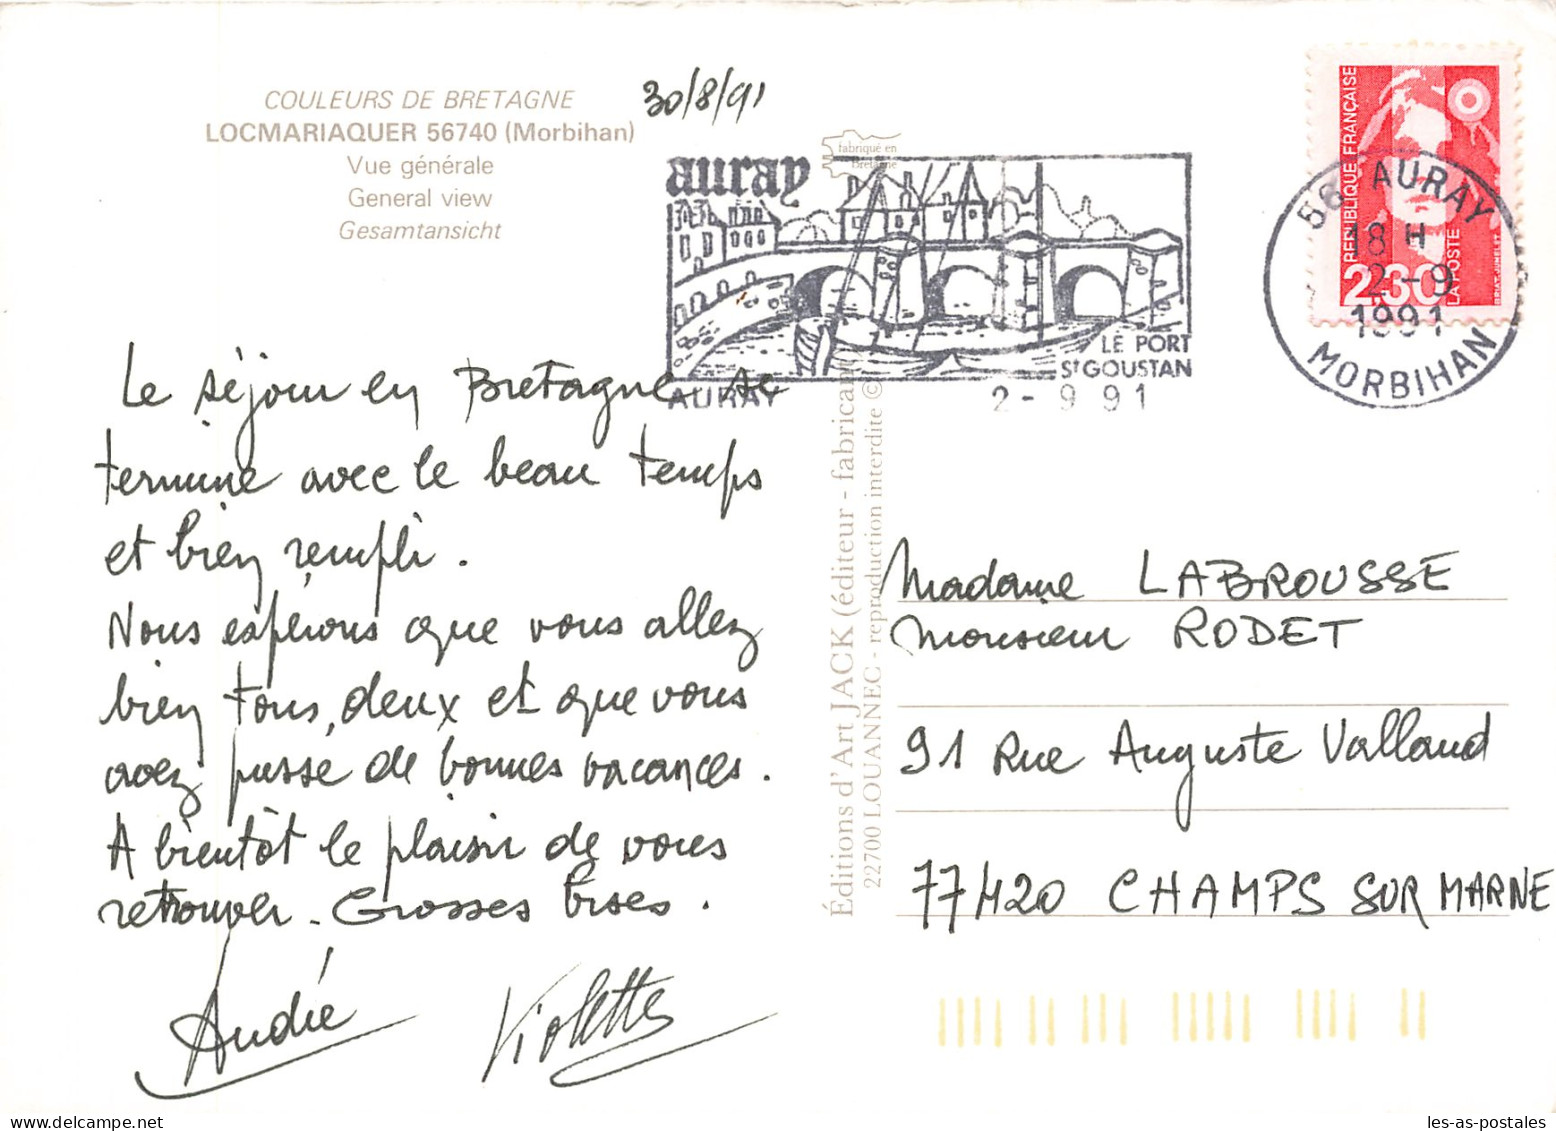 COULEURS DE BRETAGNE
LOCMARIAQUER 56740 (Morbihan)
Vue générale
General view
Gesamtansicht
30/8/91
fabriqué en
Bretagne
auray
LE PORT
St GOUSTAN
AURAY
2 - 9 91
RÉPUBLIQUE FRANÇAISE
2,30
LA POSTE
56 AURAY
18 H
2 - 9
1991
MORBIHAN
Le séjour en Bretagne se
termine avec le beau temps
et bien rempli.
Nous espérons que vous allez
bien tous deux et que vous
avez passé de bonnes vacances.
A bientôt le plaisir de vous
retrouver. Grosses bises.
André
Violette
Éditions d'Art JACK (éditeur - fabricant)
22700 LOUANNEC - reproduction interdite ©
Madame LABROUSSE
Monsieur RODET
91 Rue Auguste Valland
77420 CHAMPS SUR MARNE
les-as-postales